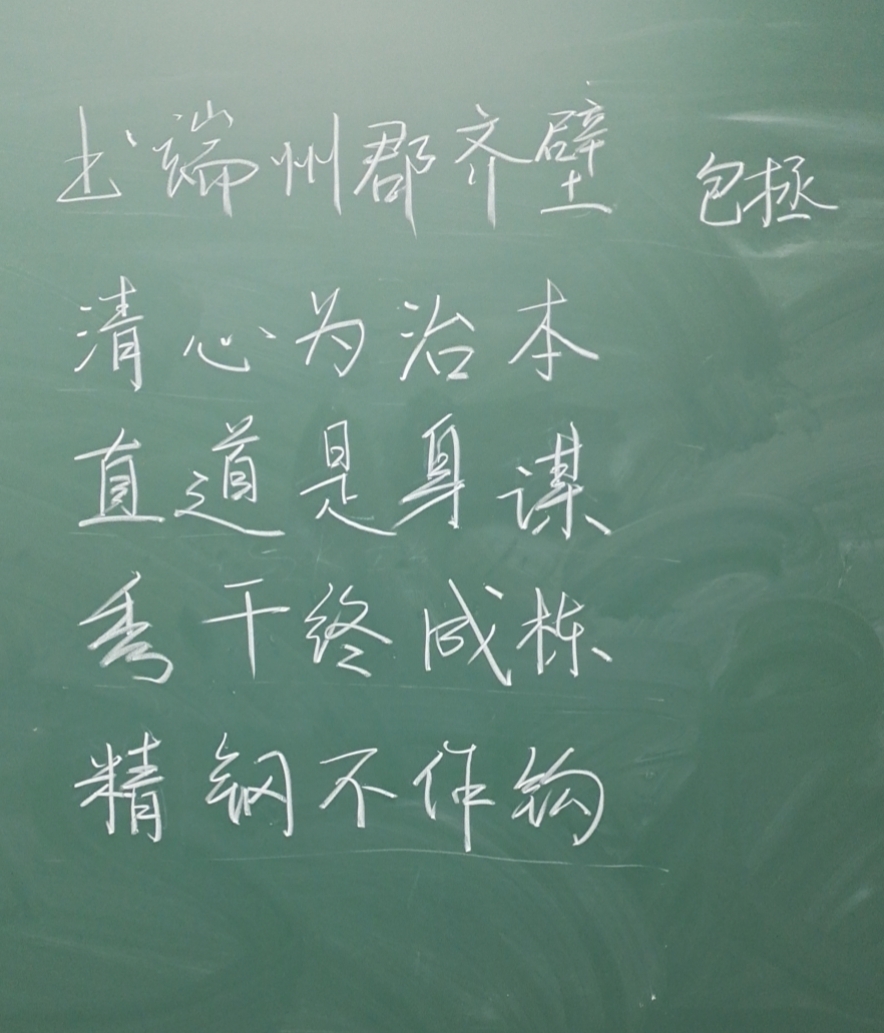 书端州郡齐壁 包拯
清心为治本
直道是身谋
秀干终成栋
精钢不作钩